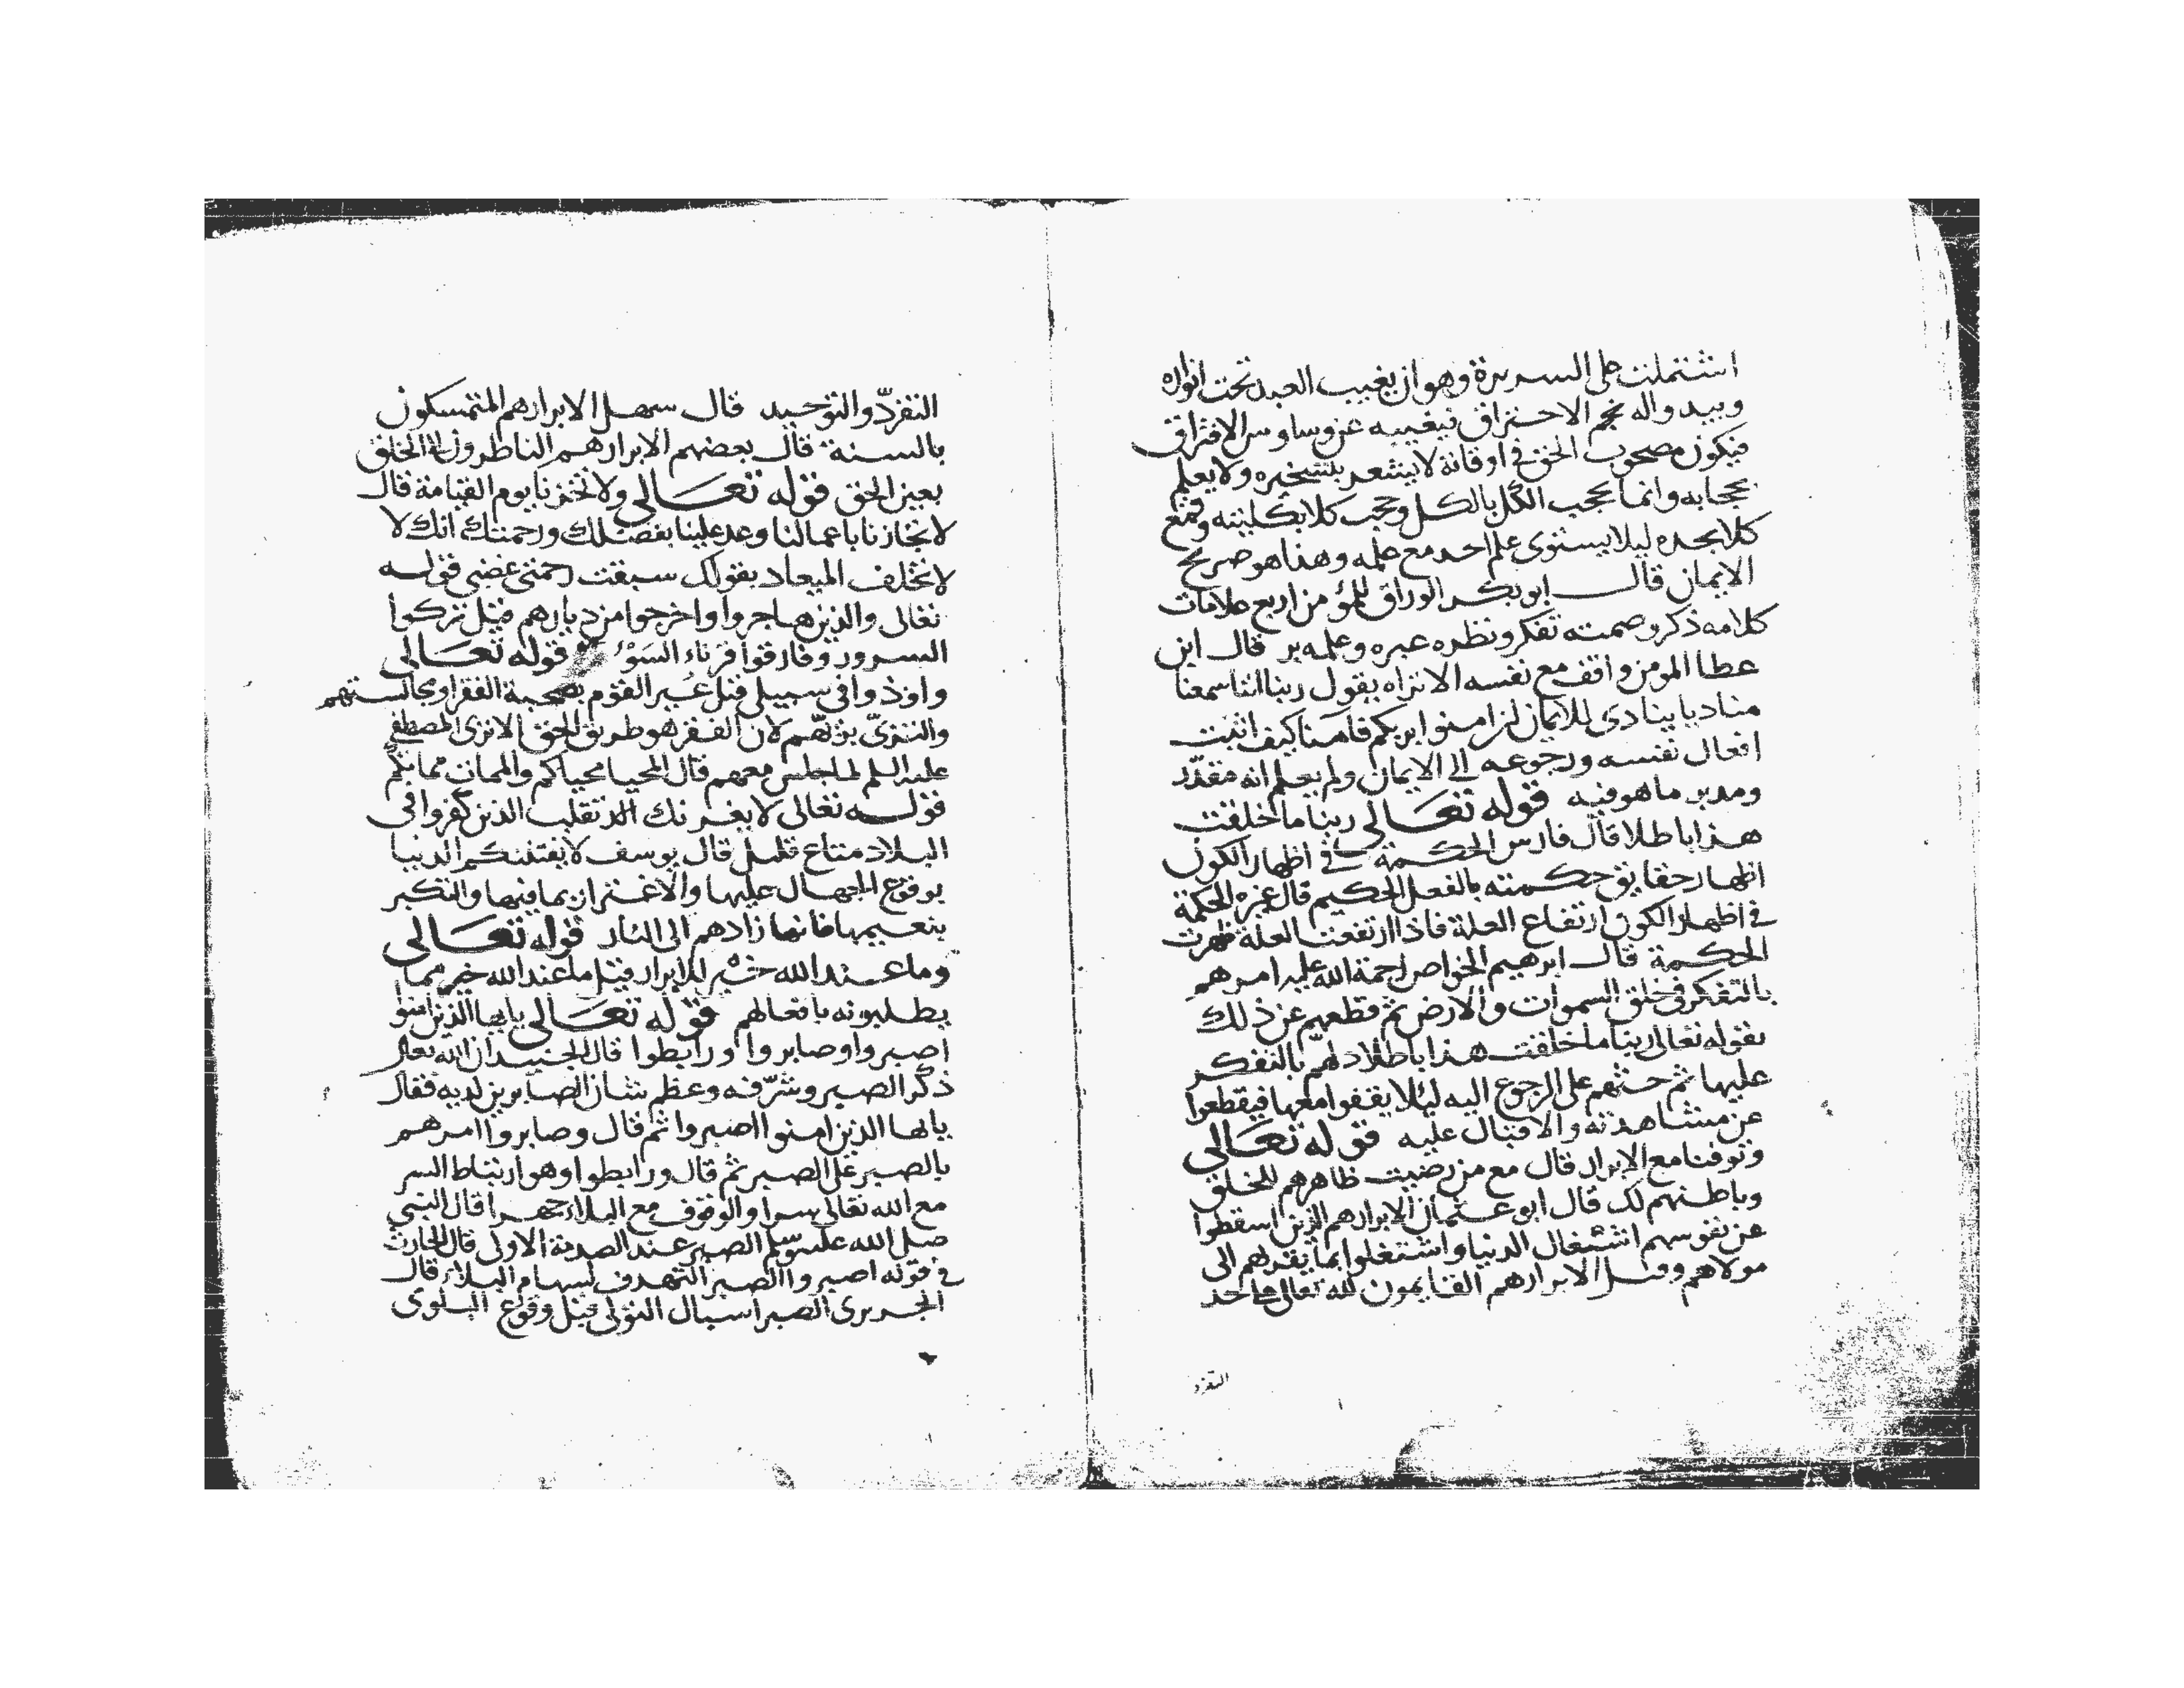 اشتملت على السريرة وهو ان يغيب العبد تحت انواره
ويبدو اله نجم الاحتراق فيغيبه عن وساوس الافتراق
فيكون مصحوب الحق في اوقاته لا يشعر بتسخيره ولا يعلم
بحجابه وانما عجب الكل بالكل وحجب كلا بكليته وقنع
كلا بحده ليلا يستوى علم احد مع علمه وهذا هو صريح
الايمان قال ابو بكر الوراق للمؤمن اربع علامات
كلامه ذكر وصمته تفكر ونظره عبره وعلمه بر قال ابن
عطا المومن واقف مع نفسه الا تراه يقول ربنا اننا سمعنا
مناديا ينادى للايمان ان امنوا بربكم فامنا كيف اثبت
افعال نفسه ورجوعه الى الايمان ولم يعلم انه مقدر
ومدبر ما هو فيه قوله تعالى ربنا ما خلقت
هذا باطلا قال فارس الحكمة في اظهار الكون
اظهار حقايق حكمته بالفعل الحكيم قال غيره الحكمة
في اظهار الكون ارتفاع العلة فاذا ارتفعت العلة ظهرت
الحكمة قال ابرهيم الخواص رحمة الله عليه امرهم
بالتفكر في خلق السموات والارض ثم قطعهم عن ذلك
بقوله تعالى ربنا ما خلقت هذا باطلا دلهم بالتفكر
عليها ثم حثهم على الرجوع اليه ليئلا يقفوا معها فيقطعوا
عن مشاهدته والاقبال عليه قوله تعالى
وتوفنا مع الابرار قال مع من رضيت ظاهرهم للخلق
وباطنهم لك قال ابو عثمان الابرار هم الذين اسقطوا
عن نفوسهم اشتغال الدنيا واشتغلوا بما يقربهم الى
مولاهم وقيل الابرار هم القايمون لله تعالى على حد
التفرد
التفرد والتوحيد قال سهل الابرار هم المتمسكون
بالسنة قال بعضهم الابرار هم الناظرون الى الخلق
بعين الحق قوله تعالى ولا تخزنا يوم القيامة قال
لا تجازنا باعمالنا وعد علينا بفضلك ورحمتك انك لا
لا تخلف الميعاد بقولك سبقت رحمتى غضبى قوله
تعالى والذين هاجروا واخرجوا من ديارهم قيل تركوا
السرور وفارقوا قرناء السوء قوله تعالى
واوذوا في سبيلى قيل عير القوم بصحبة الفقرا ومجالستهم
والتزى بزيهم لان الفقر هو طريق الحق الا ترى المصطفى
عليه السلم لما جلس معهم قال المحيا محياكم والممات مماتكم
قوله تعالى لا يغرنك تقلب الذين كفروا فى
البلاد متاع قليل قال يوسف لا يفتننكم الدنيا
بوقوع الجهال عليها والاغترار بما فيها والتكبر
بنعيمها فانها زادهم الى النار قوله تعالى
وما عند الله خير للابرار قيل ما عند الله خير مما
يطلبونه بافعالهم قوله تعالى يايها الذين امنوا
اصبروا وصابروا ورابطوا قال الجنيد ان الله تعالى
ذكر الصبر وشرفه وعظم شان الصابرين لديه فقال
يايها الذين امنوا اصبروا ثم قال وصابروا امرهم
بالصبر على الصبر ثم قال ورابطوا وهو ارتباط السر
مع الله تعالى سرا والوقوف مع البلاء جهرا قال النبي
صلى الله عليه وسلم الصبر عند الصدمة الاولى قال الحارث
في قوله اصبروا الصبر التهدف لسهام البلاء قال
الجريرى الصبر اسبال التولى قبل وقوع البلوى